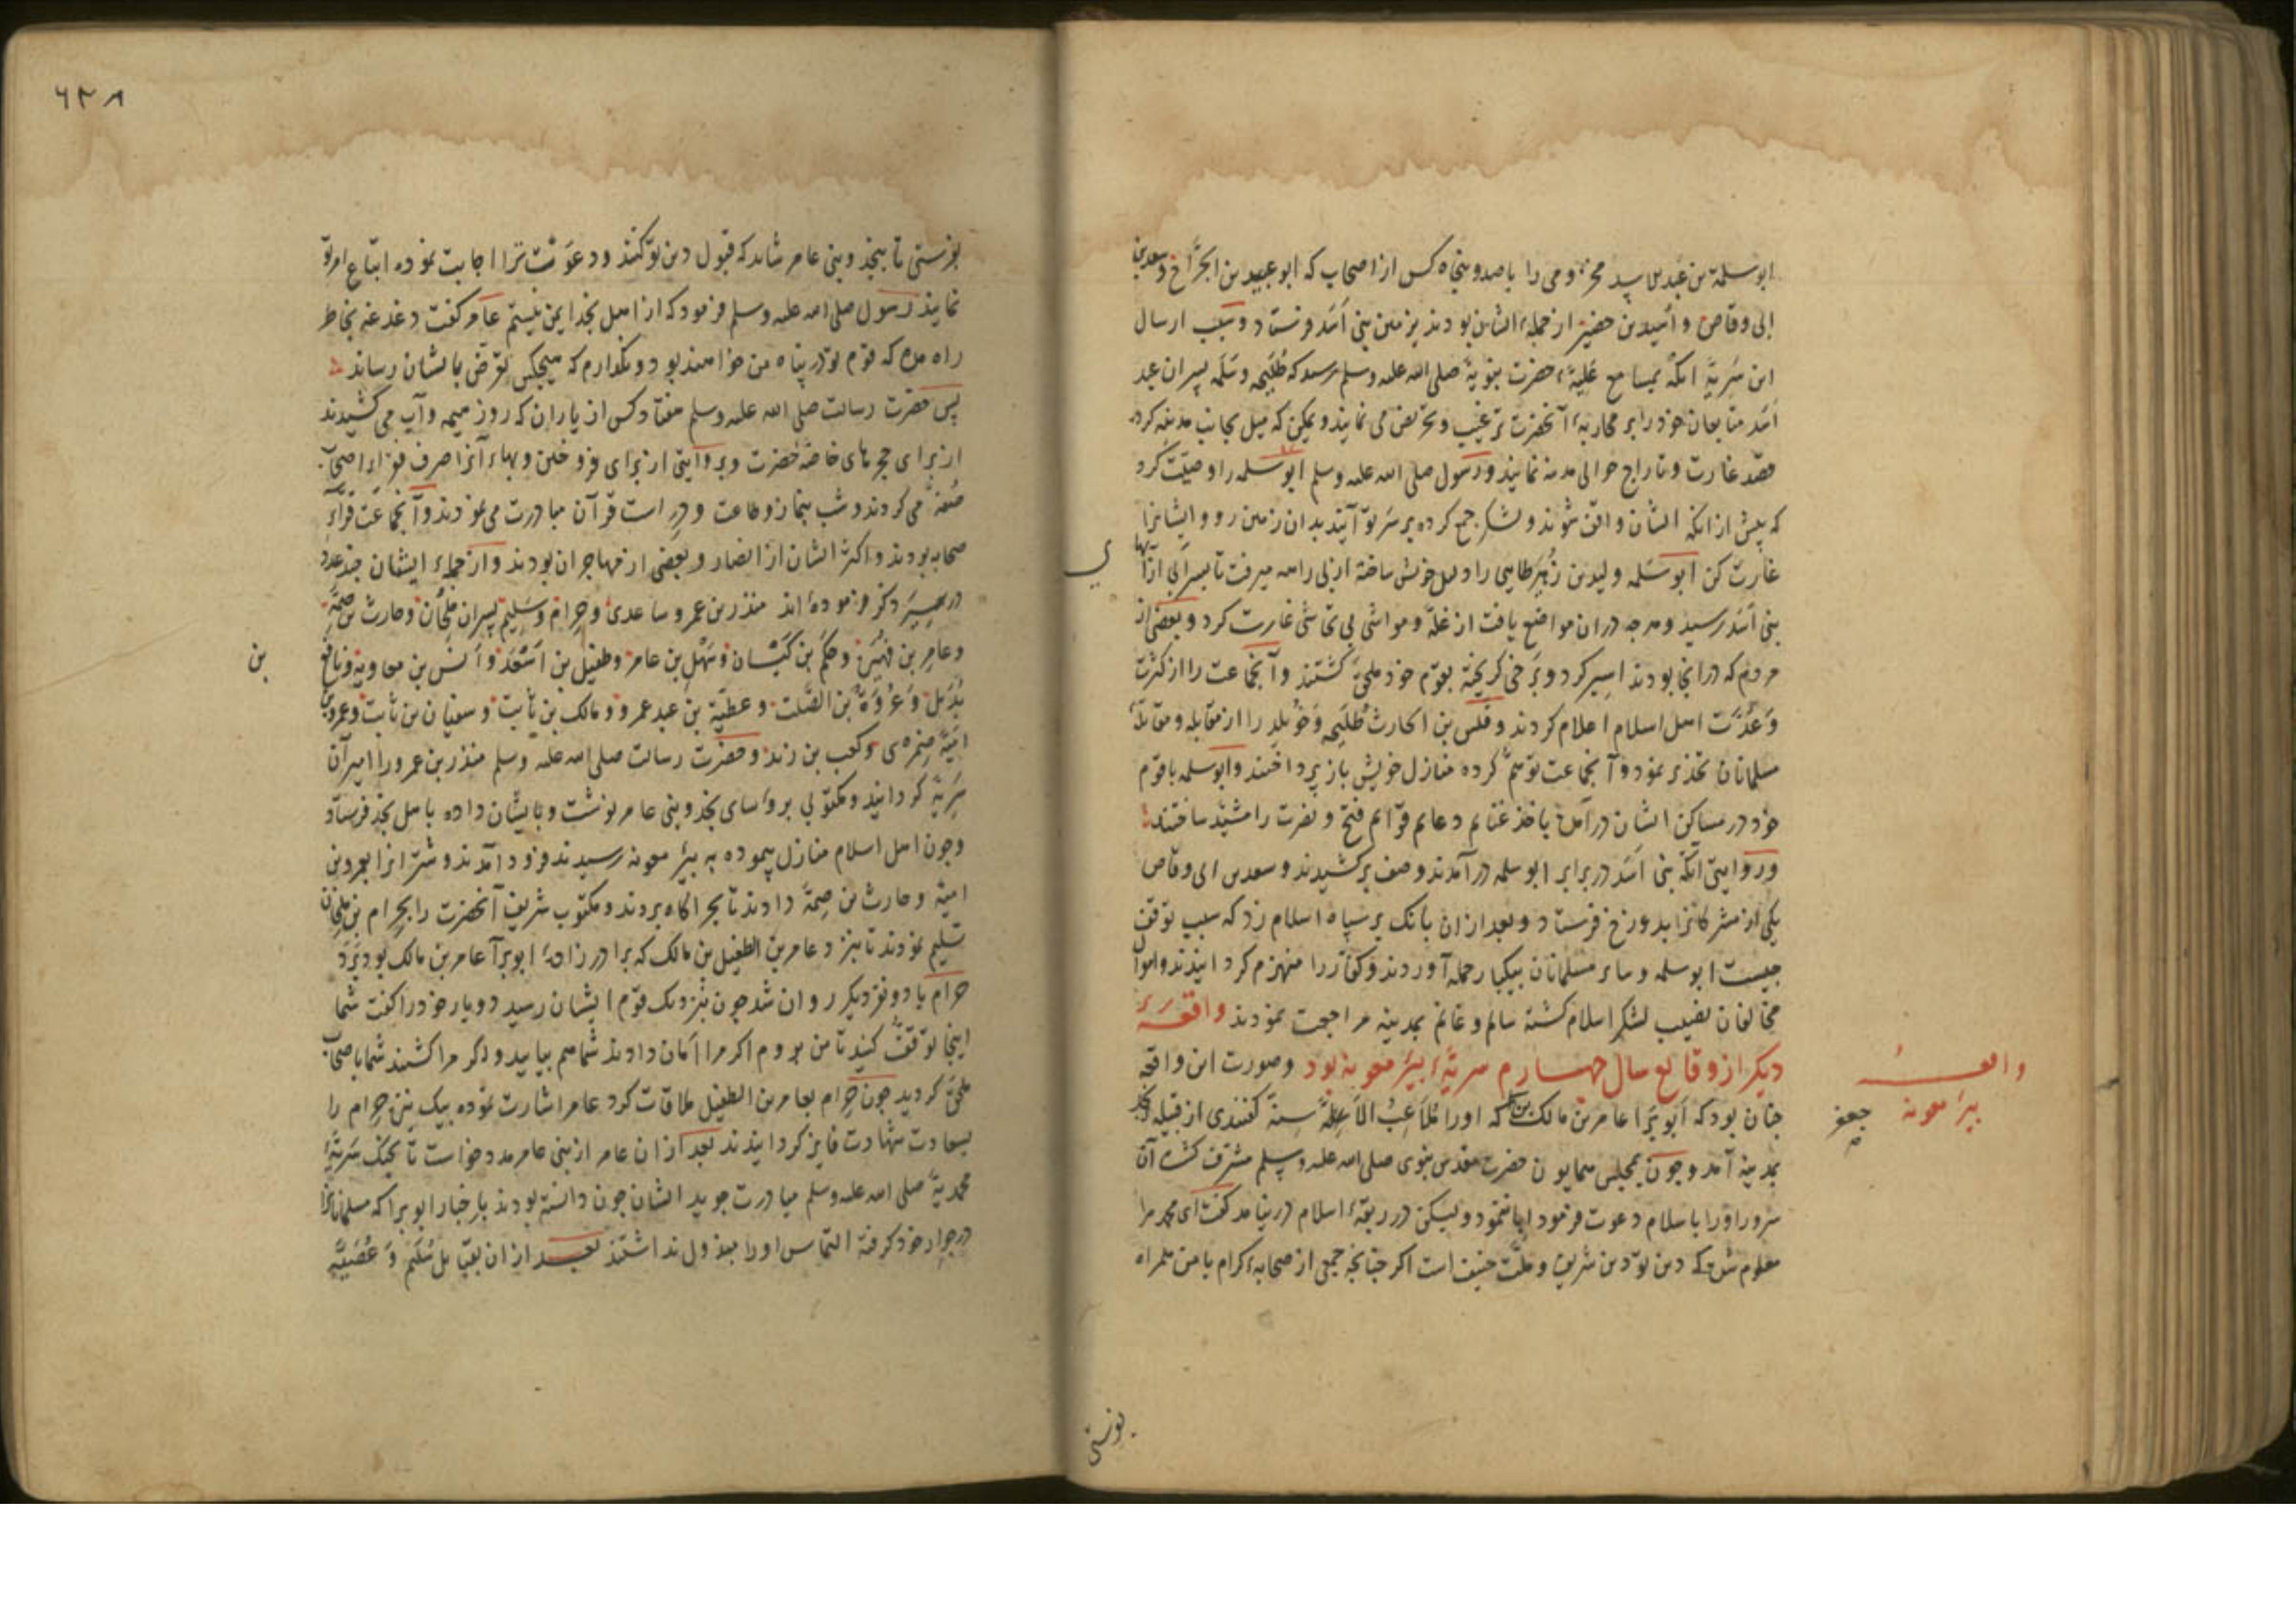 ابوسلمة بن عبدالاسد مخزومی را با صد و پنجاه کس از اصحاب که ابو عبید بن الجراح و سعد بن
ابی وقاص و اسید بن حضیر از جملهٔ ایشان بودند بزمین بنی اسد فرستاد و سبب ارسال
این سریة انکه بمسامع علیهٔ حضرت نبویه صلی الله علیه وسلم رسید که طلیحه و سلمه پسران
اسد متابعان خود را بر محاربهٔ آنحضرت ترغیب و تحریض می نمایند و یمکن که میل بجانب مدینه کرده
قصد غارت و تاراج حوالی مدینه نمایند و رسول صلی الله علیه وسلم ابوسلمه را وصیّت کرد
که پیش از انکه ایشان واقف شوند و لشکر جمع کرده بر سر تو آیند بدان زمین رو و ایشانرا
غارت کن ابوسلمه ولید بن زُهَیر طایی را دلیل خویش ساخته از بی راهه میرفت تا بسر آبی از آبها
بنی اسد رسید و هرچه دران مواضع یافت از غله و مواشی بی تحاشی غارت کرد و بعضی از
مردم که در انجا بودند اسیر کرد و برخی گریخته بقوم خود ملحق کشتند و آنجماعت را از کثرت
و عدّت اهل اسلام اعلام کردند و قلس بن الحارث طلیحه و خویلد را از مقابله و مقاتلهٔ
مسلمانان تحذیر نمود و آنجماعت توهم کرده منازل خویش باز پرداختند و ابوسلمه با قوم
خود در مساکن ایشان درآمده باخذ غنایم دعایم قوایم فتح و نصرت را مشید ساختند
و روایتی انکه بنی اسد در برابر ابوسلمه درآمدند و صف برکشیدند و سعد بن ابی وقاص
یکی از مشرکانرا بدوزخ فرستاد و بعد ازان بانک بر سپاه اسلام زد که سبب توقف
چیست ابوسلمه و سایر مسلمانان بیکبار حمله آوردند و کفار را منهزم کردانیدند و اموال
مخالفان نصیب لشکر اسلام کشته سالم و غانم بمدینه مراجعت نمودند واقعهٔ
دیکر از وقایع سال چهارم سریهٔ بیر معونه بود و صورت این واقعه
چنان بود که ابو برا عامر بن مالک بن که اورا مُلَاعِبُ الْاَسِنَّة گفتندی از قبیله نجد
بمدینه آمد و چون بمجلس همایون حضرت مقدس نبوی صلی الله علیه وسلم مشرف کشت آن
سرور او را باسلام دعوت فرمود ابا ننمود و لیکن در ربقهٔ اسلام درنیامد گفت ای محمد مرا
معلوم شد که دین تو دین شریف و ملّت حنیف است اکر چنانچه جمعی از صحابهٔ کرام با من همراه
واقعهٔ
بیر معونه
جعفر
بفرستی
٦٣٨
بفرستی تا بنجد و بنی عامر شاید که قبول دین تو کنند و دعوتت ترا اجابت نموده اتباع امر تو
نمایند رسول صلی الله علیه وسلم فرمود که از اهل نجد ایمن نیستم عامر گفت دغدغه بخاطر
راه مده که قوم تو در پناه من خواهند بود و نکذارم که هیچکس تعرض بایشان رساند
پس حضرت رسالت صلی الله علیه وسلم هفتاد کس از یاران که روز هیمه و آب می کشیدند
از برای حجرهای خاصهٔ حضرت و بروایتی از برای فروختن و بهاء آنرا صرف فقراء اصحاب
صفه می کردند و شب بنماز و طاعت و دراست قرآن مبادرت می نمودند و آنجماعت قرآء
صحابه بودند و اکثر ایشان از انصار و بعضی از مهاجران بودند و از جملهٔ ایشان چند عدد
در سیر ذکر فرموده اند منذر بن عمرو ساعدی و حرام و سلیم پسران ملحان و حارث بن صمّه
و عامر بن فهیره و حکم بن کیسان و سهل بن عامر و طفیل بن اسعد و انس بن معاویه و نافع
بن
بدیل و عروة بن الصلت و عطیّة بن عبد عمرو و مالک بن ثابت و سفیان بن ثابت و عمرو بن
امیّة ضمری و کعب بن زید و حضرت رسالت صلی الله علیه وسلم منذر بن عمرو را امیر آن
سریة کردانید و مکتوبی برؤسای نجد و بنی عامر نوشت و بایشان داده باهل نجد فرستاد
و چون اهل اسلام منازل پیموده به بیر معونه رسیدند فرود آمدند و شترانرا بعمرو بن
امیة و حارث بن صمة دادند تا بچراکاه بردند و مکتوب شریف آنحضرت را بحرام بن ملحان
تسلیم نمودند تا بنزد عامر بن الطفیل بن مالک که برادرزادهٔ ابوبرآ عامر بن مالک بود برد
حرام با دو نفر دیکر روان شد چون بنزدیک قوم ایشان رسید دو یار خود را گفت شما
اینجا توقف کنید تا من بروم اکر مرا امان دادند شما هم بیایید و اکر مرا کشتند شما باصحاب
ملحق کردید چون حرام بعامر بن الطفیل ملاقات کرد عامر اشارت نموده بیک نیزه حرام را
بسعادت شهادت فایز کردانیدند بعد ازان عامر از بنی عامر مدد خواست تا بجنک سریهٔ
محمدیة صلی الله علیه وسلم مبادرت جوید ایشان چون دانسته بودند باخبار ابو برا که مسلمانانرا
در جوار خود کرفته التماس اورا مبذول نداشتند بعد ازان بقبایل سُلَیم و عُصَیَّه